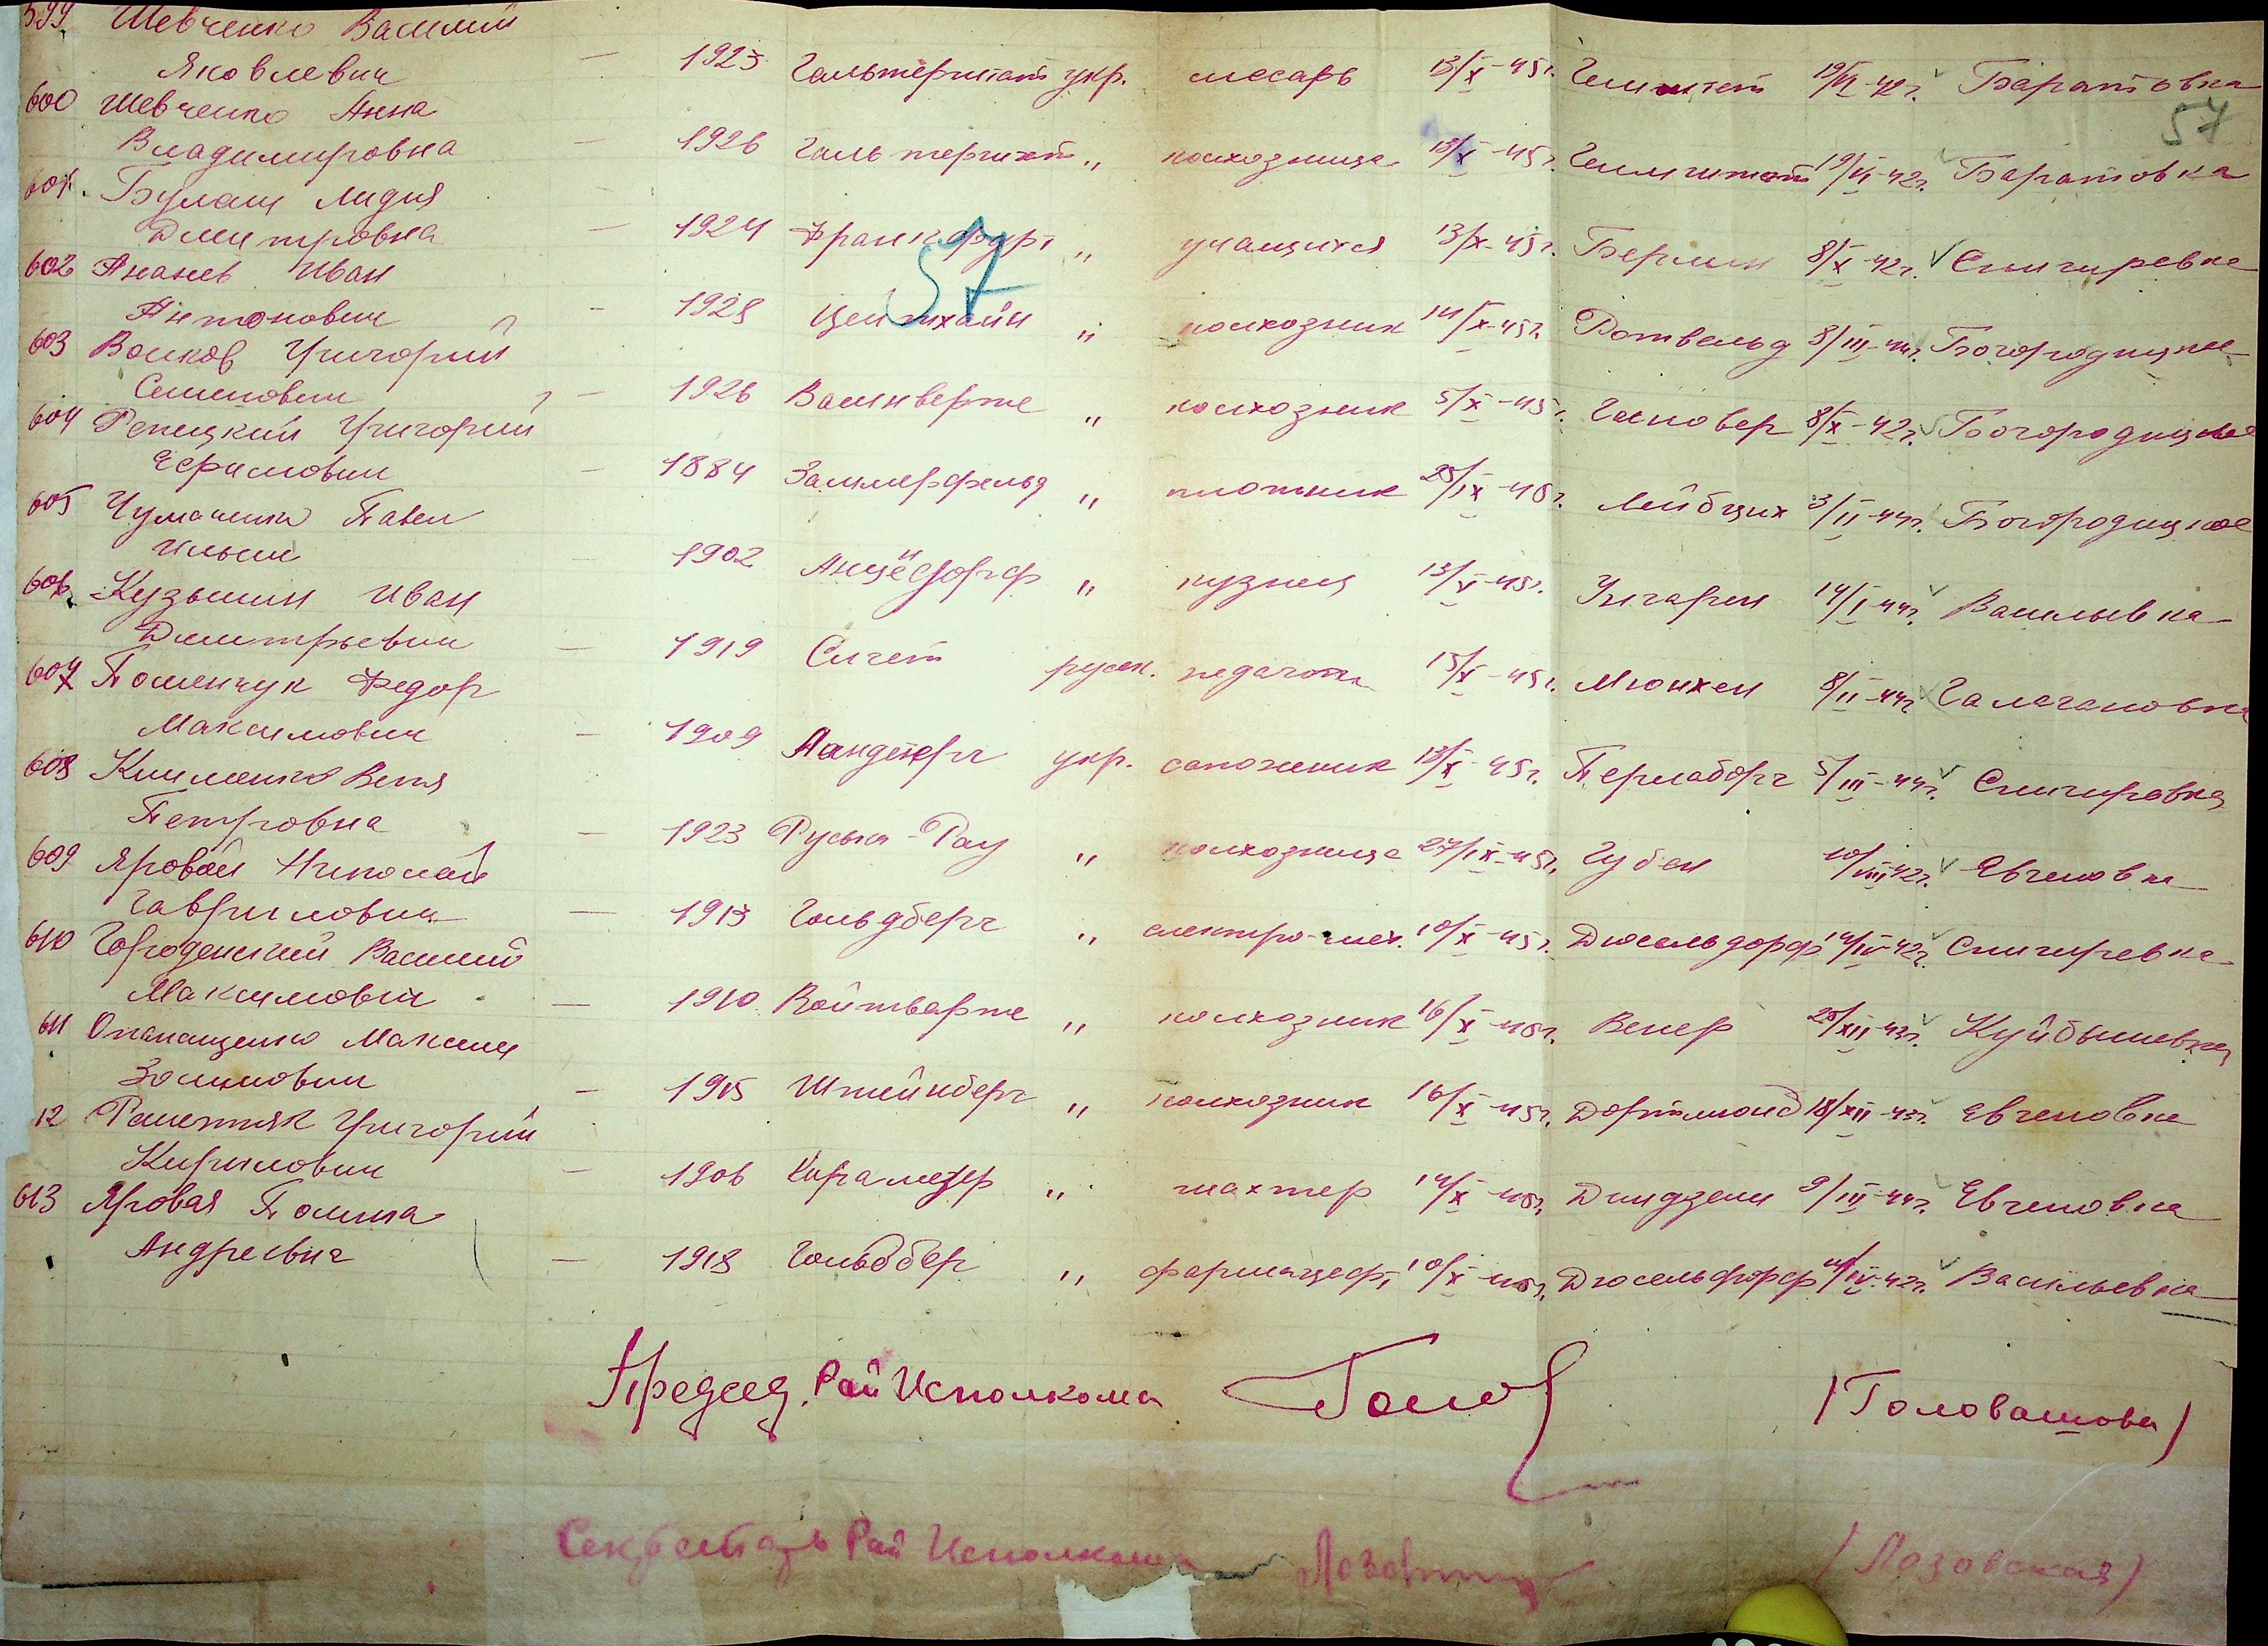 599. Шевченко Василий
Яковлевич — 1923 Гальтерштат укр. слесарь 13/X-45г. Гелмштет 19/VI-42г. Баратовка
57
600 Шевченко Анна
Владимировна — 1926 Гальтерштат " колхозница 13/X-45г. Гелмштат 19/VI-42г. Баратовка
601. Булаш Лидия
Дмитровна — 1924 Франкфурт " учащийся 13/X-45г. Берлин 8/X-42г. Снигиревка
57
602 Ананьев Иван
Антонович — 1928 Цейтхайн " колхозник 14/X-45г. Ротвельд 8/III-44г. Богородицкое
603 Волков Григорий
Семенович — 1926 " колхозник 5/X-45г. Ганновер 8/X-42г. Богородицкое
604 Репецкий Григорий
Ефимович — 1884 Заммерфельд " плотник 28/IX-45г. Лейбциг 3/II-44г. Богородицкое
605 Чумаченко Павел
Ильич — 1902 " кузнец 13/X-45г. Унгарен 14/I-44г. Васильевка
606. Кузьмин Иван
Дмитрьевич — 1919 Сигет русск. педагог 15/X-45г. Мюнхен 8/II-44г. Галагановка
607 Поленчук Федор
Максимович — 1909 укр. сапожник 13/X-45г. Перлаборг 5/III-44г. Снигировка
608 Клименко Вета
Петровна — 1923 Руська-Рау " колхозница 27/IX-45г. Губен 10/VIII-42г. Евгеновка
609 Яровой Николай
Гаврилович — 1913 Гольдберг " електро-мех. 10/X-45г. Дюсельдорф 14/IV-42г. Снигиревка
610 Городенский Василий
Максимович — 1910 Войтварте " колхозник 16/X-45г. Венер 25/XII-43г. Куйбышевка
611 Опанащенко Максим
Зосимович — 1915 Штейнберг " колхозник 16/X-45г. Дортмонд 18/XII-43г. Евгеновка
12 Решетняк Григорий
Кирилович — 1906 " шахтер 14/X-45г. Диндзен 9/III-44г. Евгеновка
613 Яровая Полина
Андреевна — 1918 Гольдбер " фармацефт 10/X-45г. Дюсельфорф 14/IV-42г. Васильевка
Председ. РайИсполкома Голов (Головашова)
Секретарь Рай Исполкома Лозовская (Лозовская)